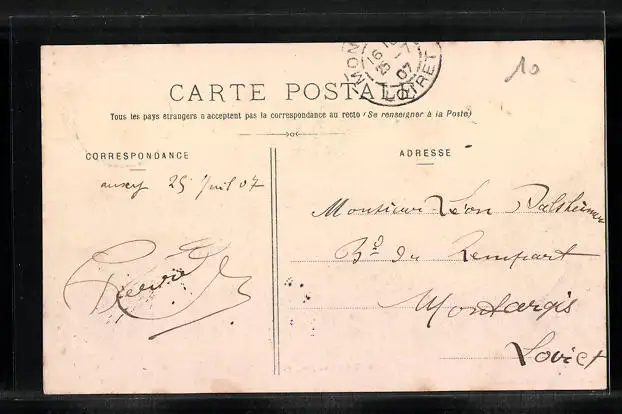 10
MON
16 15
25 -7
07
LOIRET
CARTE POSTALE
Tous les pays étrangers n'acceptent pas la correspondance au recto (Se renseigner à la Poste)
CORRESPONDANCE
25 Juil 07
ADRESSE
Monsieur Léon
Bd du Rempart
Montargis
Loiret